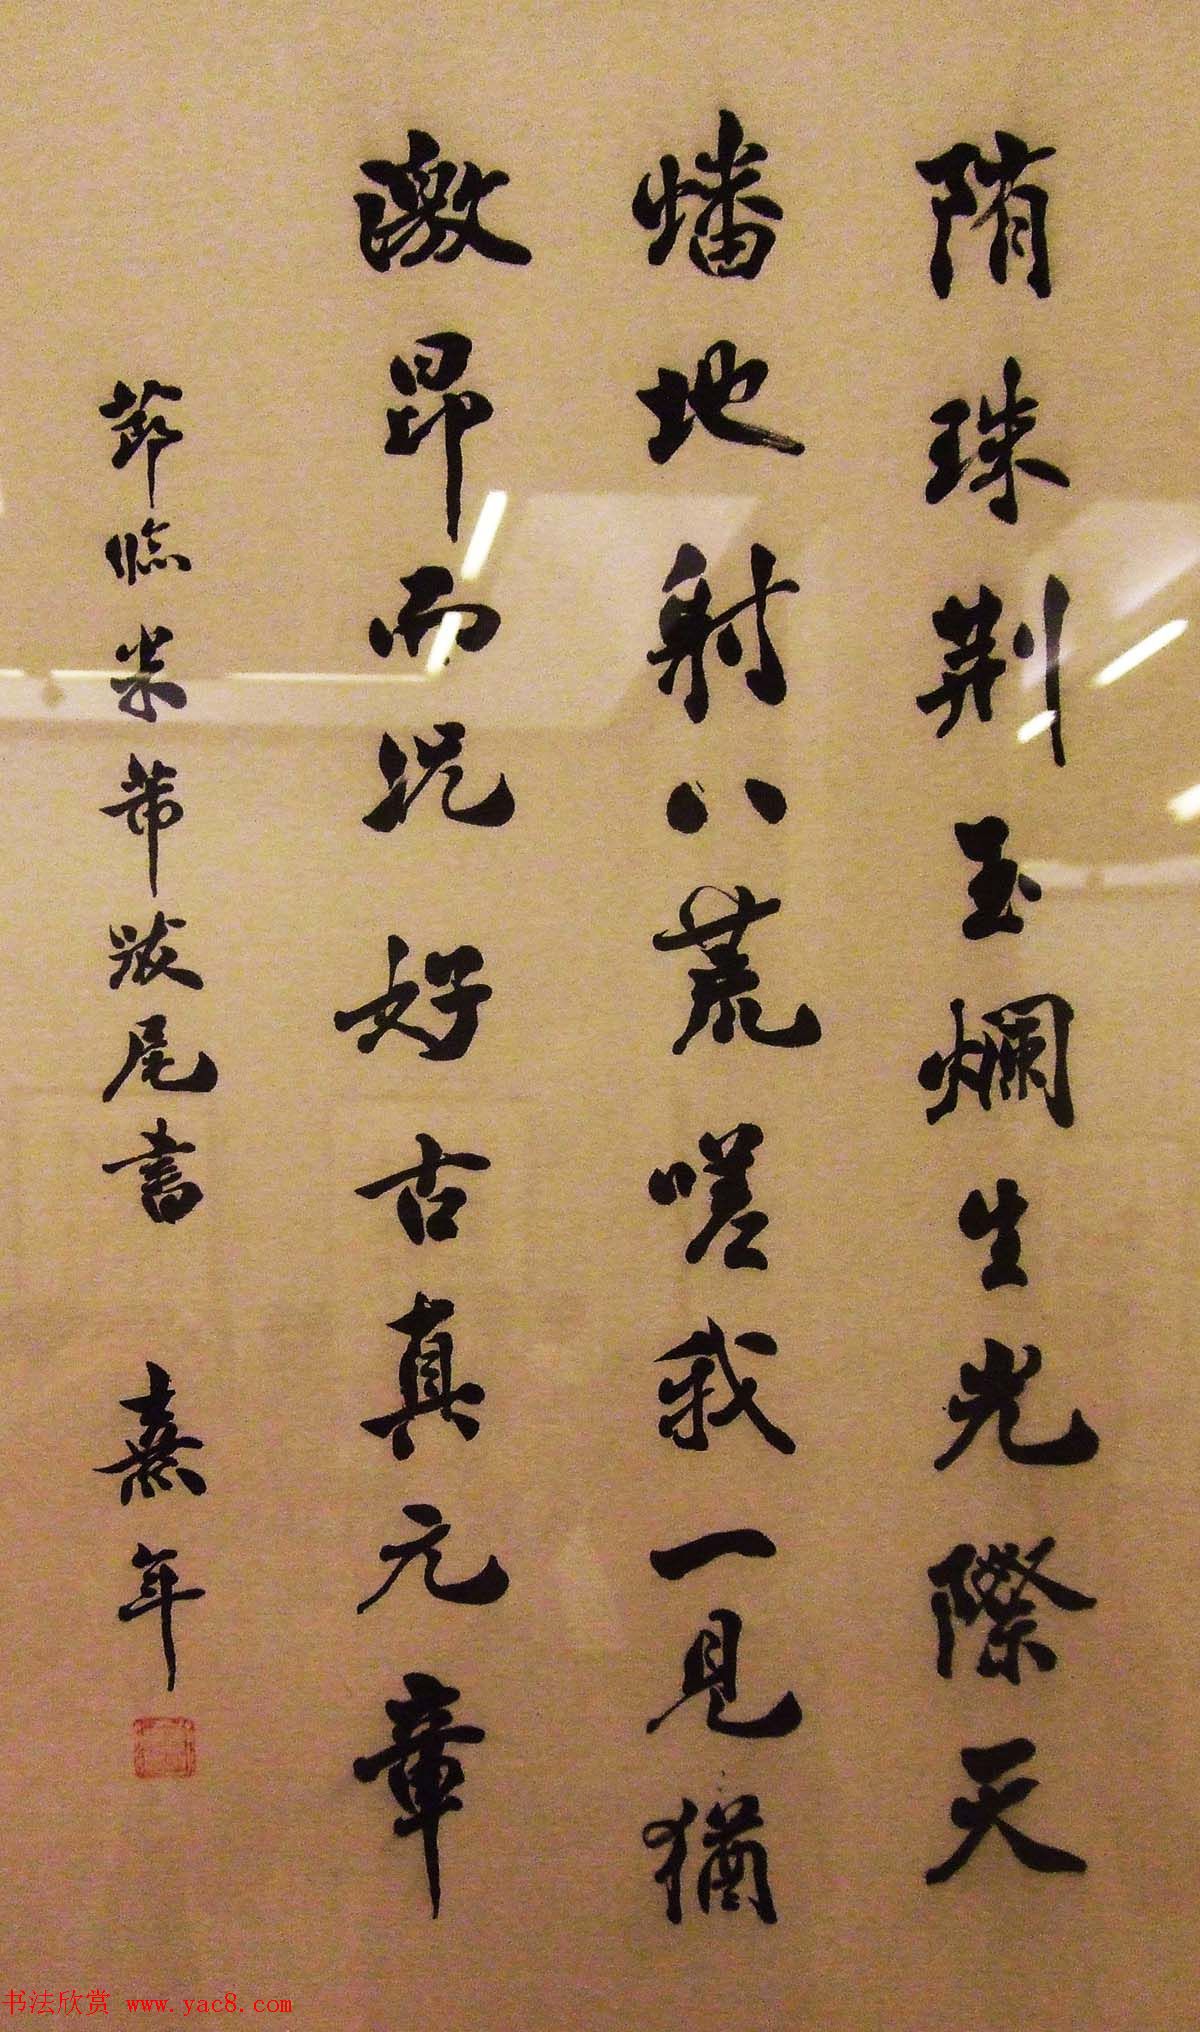 隋珠荆玉爛生光際天
蟠地射八荒嗟我一見猶
激昂而况好古真元章
節臨米芾跋尾書 熹年
书法欣赏 www.yac8.com